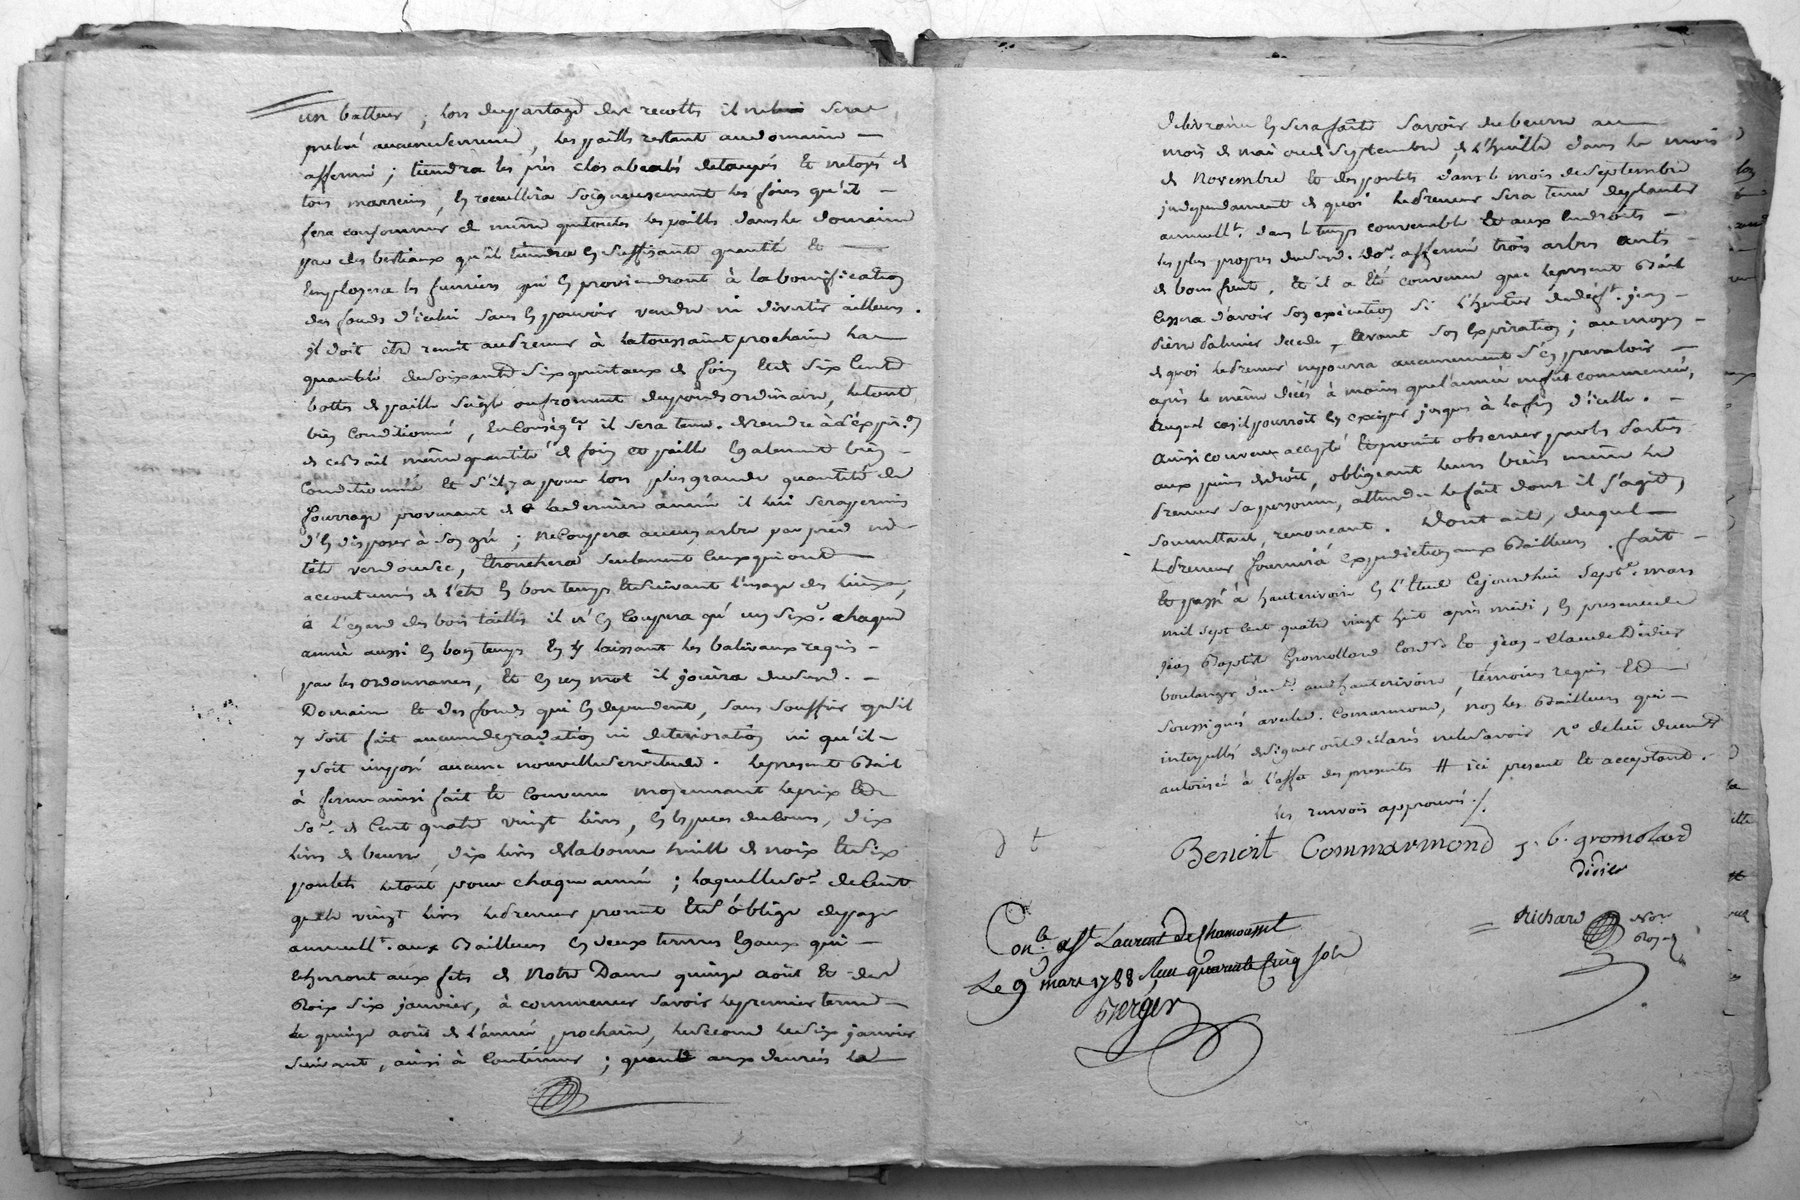 un batteur ; lors du partage des recoltes il ne lui sera
prélevé aucune semence, les pailles restant au domaine
affermé ; tiendra les près clos abealés detaupés et netoyés de
tous marreins, en receuillira soigneusement les foins qu'il
fera consommer de même que toutes les pailles dans le domaine
par des bestiaux qu'il tiendra en suffisante quantité et
employera les fumiers qui en proviendront à la bonification
des fonds d'icelui sans en pouvoir vendre ni divertir ailleurs.
il doit etre remit au preneur à la toussaint prochaine la
quantité de soixante six quintaux de foin et de six cent
bottes de paille seigle ou froment du poids ordinaire, le tout
bien conditionné, en conséq.ce il sera tenu de rendre à l'expir.on
de ce bail même quantité de foin et paille egalement bien
conditionné et s'il y a pour lors plus grande quantité de
fourrage provenant de la derniere année il lui sera permis
d'en disposer à son gré ; ne coupera aucun arbre par pied ni
tête verd ou sec, ébranchera seulement ceux qui ont
accoutumés de l'etre en bon temps et suivant l'usage des lieux,
à l'egard des bois taillis il n'en coupera qu'un six.e chaque
année aussi en bon temps en y laissant les balivaux requis
par les ordonnances, et en un mot il jouira dud.
Domaine et des fonds qui en dependent, sans souffrir qu'il
y soit fait aucune degradation ni deterioration ni qu'il
y soit imposé aucune nouvelle servitude. le present Bail
à ferme ainsi fait et convenu moyennant le prix et
so.e de cent quatre vingt livres, en especes du cours, dix
livres de beurre, dix livres de la bonne huille de noix et six
poulets le tout pour chaque année ; laquelle so.e de cent
quatre vingt livres le preneur promet et s'oblige de payer
annuell.t aux Bailleurs en deux termes egaux qui
echeront aux fetes de Notre Dame quinze août et des
Roix six janvier, à commencer savoir le premier terme
le quinze août de l'année prochaine, le second le six janvier
suivant, ainsi à continuer ; quant aux denrées la
delivrance en sera faite savoir du beurre au
mois de mai ou de septembre, de l'huille dans le mois
de Novembre et des poulets dans le mois de septembre
independament de quoi le preneur sera tenu de planter
annuell.t dans le temps convenable et aux endroits
les plus propres dud. do.e affermé trois arbres antés
de bons fruits. et il a été convenu que le present Bail
cessera d'avoir son execution si l'heritier dud. déf.t jean
pierre palmier decede avant son expiration ; au moyen
de quoi le preneur ne pourra aucunement s'en prevaloir
après le même décès à moins que l'année ne fut commencée,
auquel cas il pourroit en exciper jusques à la fin d'icelle.
Ainsi convenu accepté et promit observer par les parties
aux peines de droit, obligeant leurs biens même le
preneur sa personne, attendu le fait dont il s'agit,
soumettant, renonceant. Dont acte, duquel
le preneur fournira expedition aux Bailleurs. fait
et passé à hauterivoire en l'etude cejourdhui sept.e mars
mil sept cent quatre vingt huit après midi, en presence de
jean Baptiste Gromollard cord.r et jean-Claude Didier
boulanger dem.t aud hauterivoire, témoins requis et
soussignés avec led. Commarmond, non les Bailleurs qui
interpellés de signer ont declarés ne le savoir
autorisée à l'effet des presentes # ici present et acceptant.
les renvois approuvés ./.
Benoit Commarmond J. b. gromolard
Didier
d t
Richard No.re
Roy.al
Con.lé a St Laurent de Chamousset
Le 9 mars 1788 Reçu quarante Cinq sols
Verger